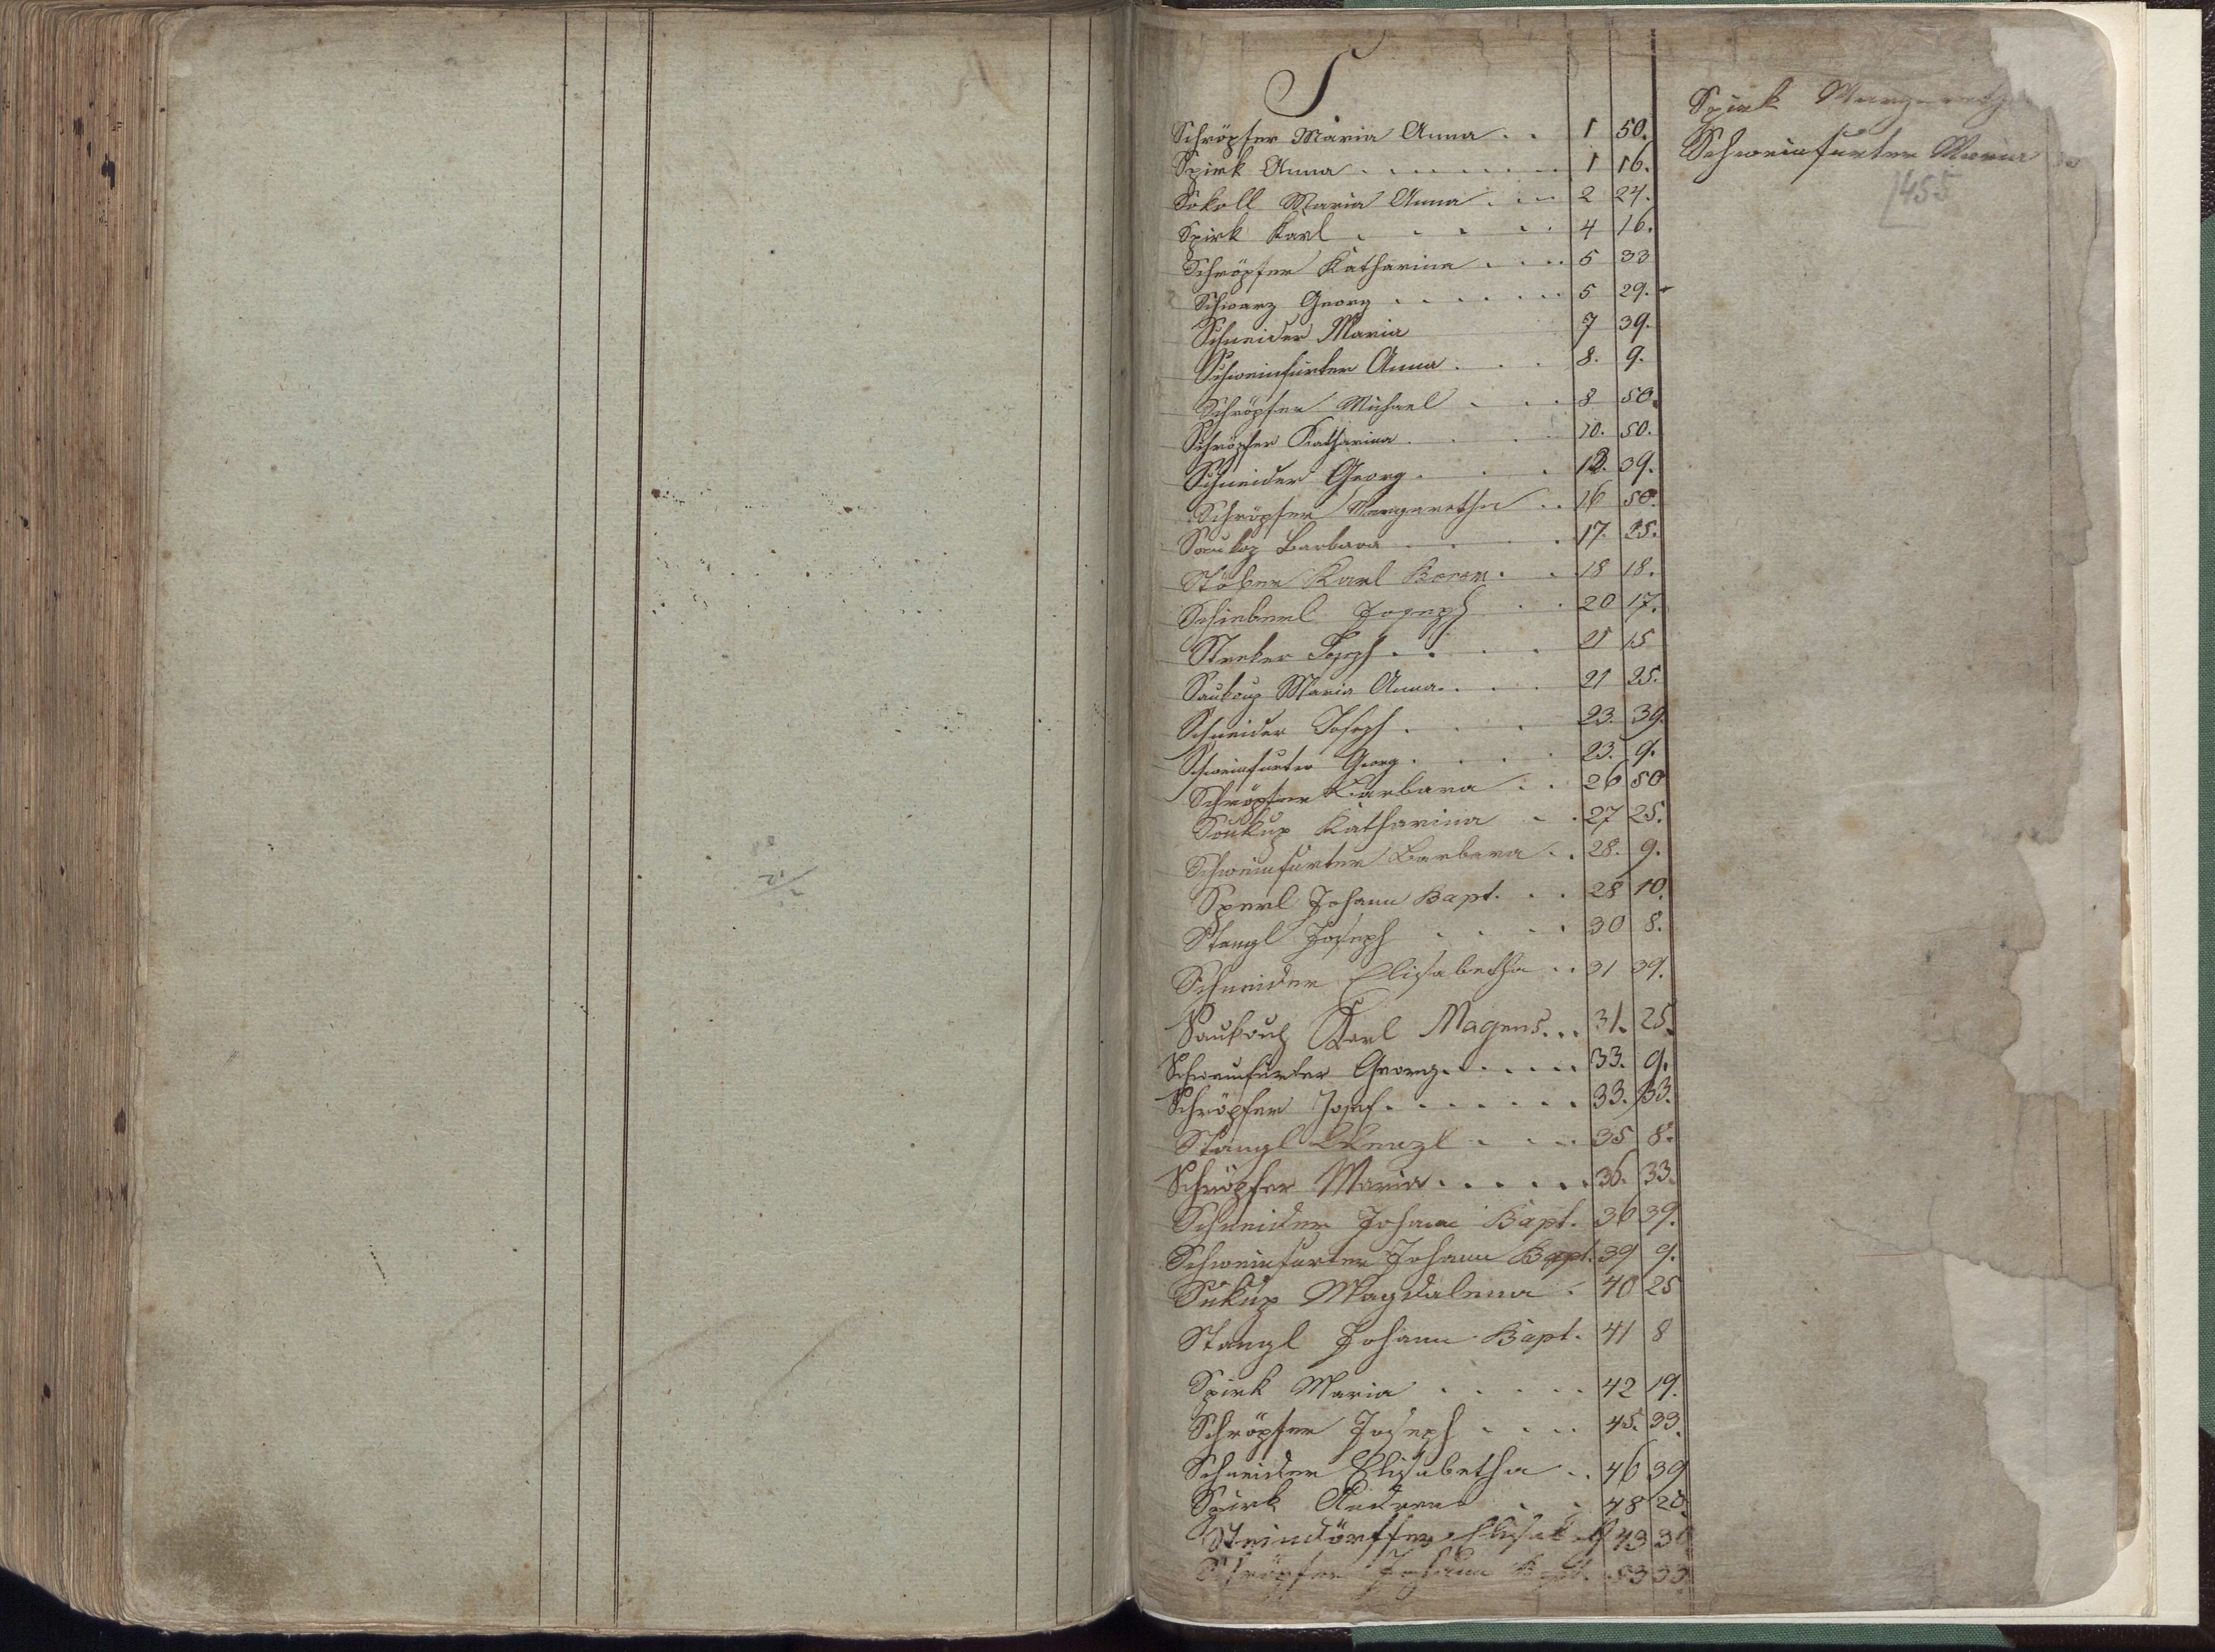 S
Schröpfer Maria Anna . . 1 50.
Spirk Anna . . . . . . . 1 16.
Sokoll Maria Anna . . . 2 24.
Spirk Karl . . . . . 4 16.
Schröpfer Katharina . . . 5 33
Schwarz Georg . . . . . . 5 29.
Schneider Maria 7 39.
Schweinfurter Anna . . . 8. 9.
Schröpfer Michael . . . 8 50.
Schröpfer Katharina . . . 10. 50.
Schneider Georg . . . 12. 39.
Schröpfer Margaretha . . 16 50.
Barbara . . . . 17. 25.
Stöber Karl . . 18 18.
Schieberl Joseph . . 20 17.
Joseph . . . . 21 15
Saukoup Maria Anna . . . 21 25.
Schneider Joseph . . . 23. 39.
Schweinfurter Georg . . . . 23. 9.
Schröpfer Barbara . . 26 50
Soukup Katharina . . 27 25.
Schweinfurter Barbara . . 28. 9.
Sperl Johann Bapt. . . 28 10.
Stangl Joseph . . . . 30 8.
Schneider Elisabetha . . 31 39.
Karl Magens . . . 31. 25.
Schweinfurter Georg . . . . . . 33. 9.
Schröpfer Josef . . . . . . . 33. 33.
Stangl Wenzl . . . . 35 8.
Schröpfer Maria . . . . . . 36. 33.
Schneider Johann Bapt. 36 39.
Schweinfurter Johann Bapt. 39 9.
Sukup Magdalena . 40 25
Stangl Johann Bapt. 41 8
Spirk Maria . . . . . 42 19.
Schröpfer Joseph . . . . 45. 33.
Schneider Elisabetha . . 46 39
Spirk Andreas . . 48 20.
Steindörffer 43
Schröpfer Johann Bapt. 53 33.
Spirk
Schweinfurter Maria
455